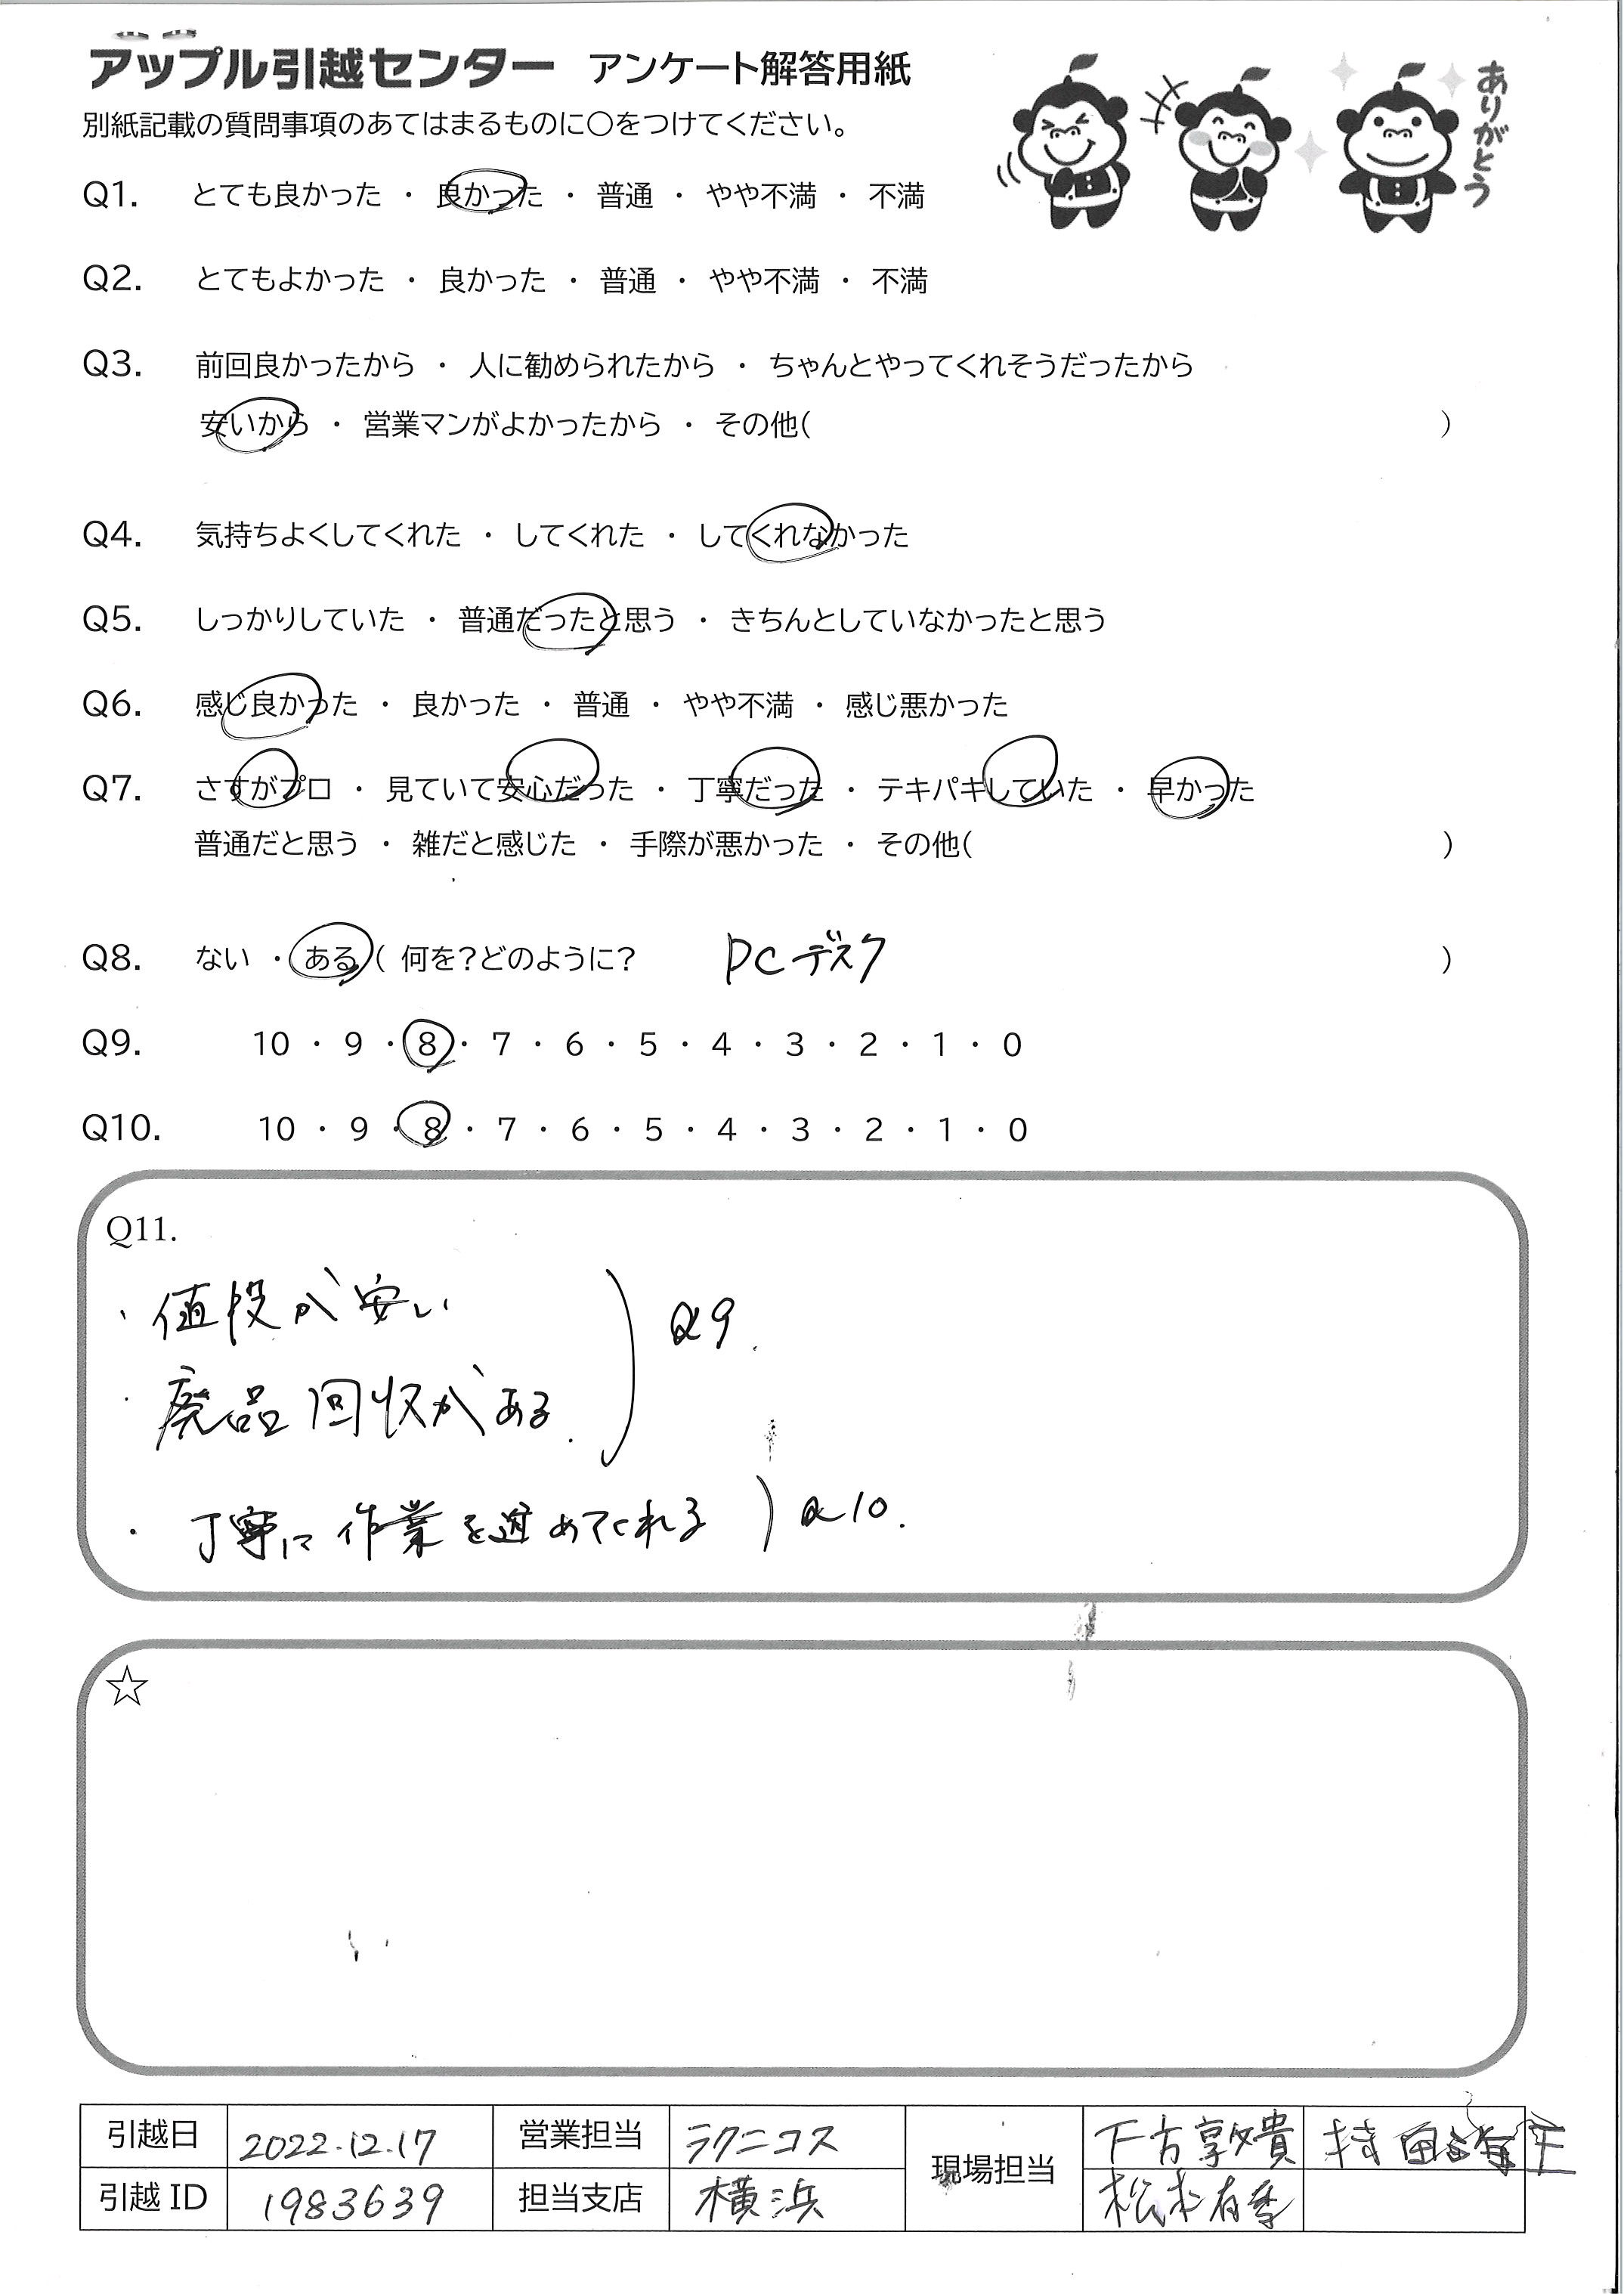 アップル引越センター アンケート解答用紙
ありがとう
別紙記載の質問事項のあてはまるものに○をつけてください。
Q1. とても良かった ・ 良かった ・ 普通 ・ やや不満 ・ 不満
Q2. とてもよかった ・ 良かった ・ 普通 ・ やや不満 ・ 不満
Q3. 前回良かったから ・ 人に勧められたから ・ ちゃんとやってくれそうだったから
安いから ・ 営業マンがよかったから ・ その他( )
Q4. 気持ちよくしてくれた ・ してくれた ・ してくれなかった
Q5. しっかりしていた ・ 普通だったと思う ・ きちんとしていなかったと思う
Q6. 感じ良かった ・ 良かった ・ 普通 ・ やや不満 ・ 感じ悪かった
Q7. さすがプロ ・ 見ていて安心だった ・ 丁寧だった ・ テキパキしていた ・ 早かった
普通だと思う ・ 雑だと感じた ・ 手際が悪かった ・ その他( )
Q8. ない ・ ある ( 何を?どのように? PCデスク )
Q9. 10 ・ 9 ・ 8 ・ 7 ・ 6 ・ 5 ・ 4 ・ 3 ・ 2 ・ 1 ・ 0
Q10. 10 ・ 9 ・ 8 ・ 7 ・ 6 ・ 5 ・ 4 ・ 3 ・ 2 ・ 1 ・ 0
Q11.
・ 値段が安い
・ 廃品回収がある. ) Q9.
・ 丁寧に作業を進めてくれる ) Q10.
☆
引越日 2022.12.17 営業担当 ラクニコス 現場担当 下方享貴 持田
引越 ID 1983639 担当支店 横浜 松本有季